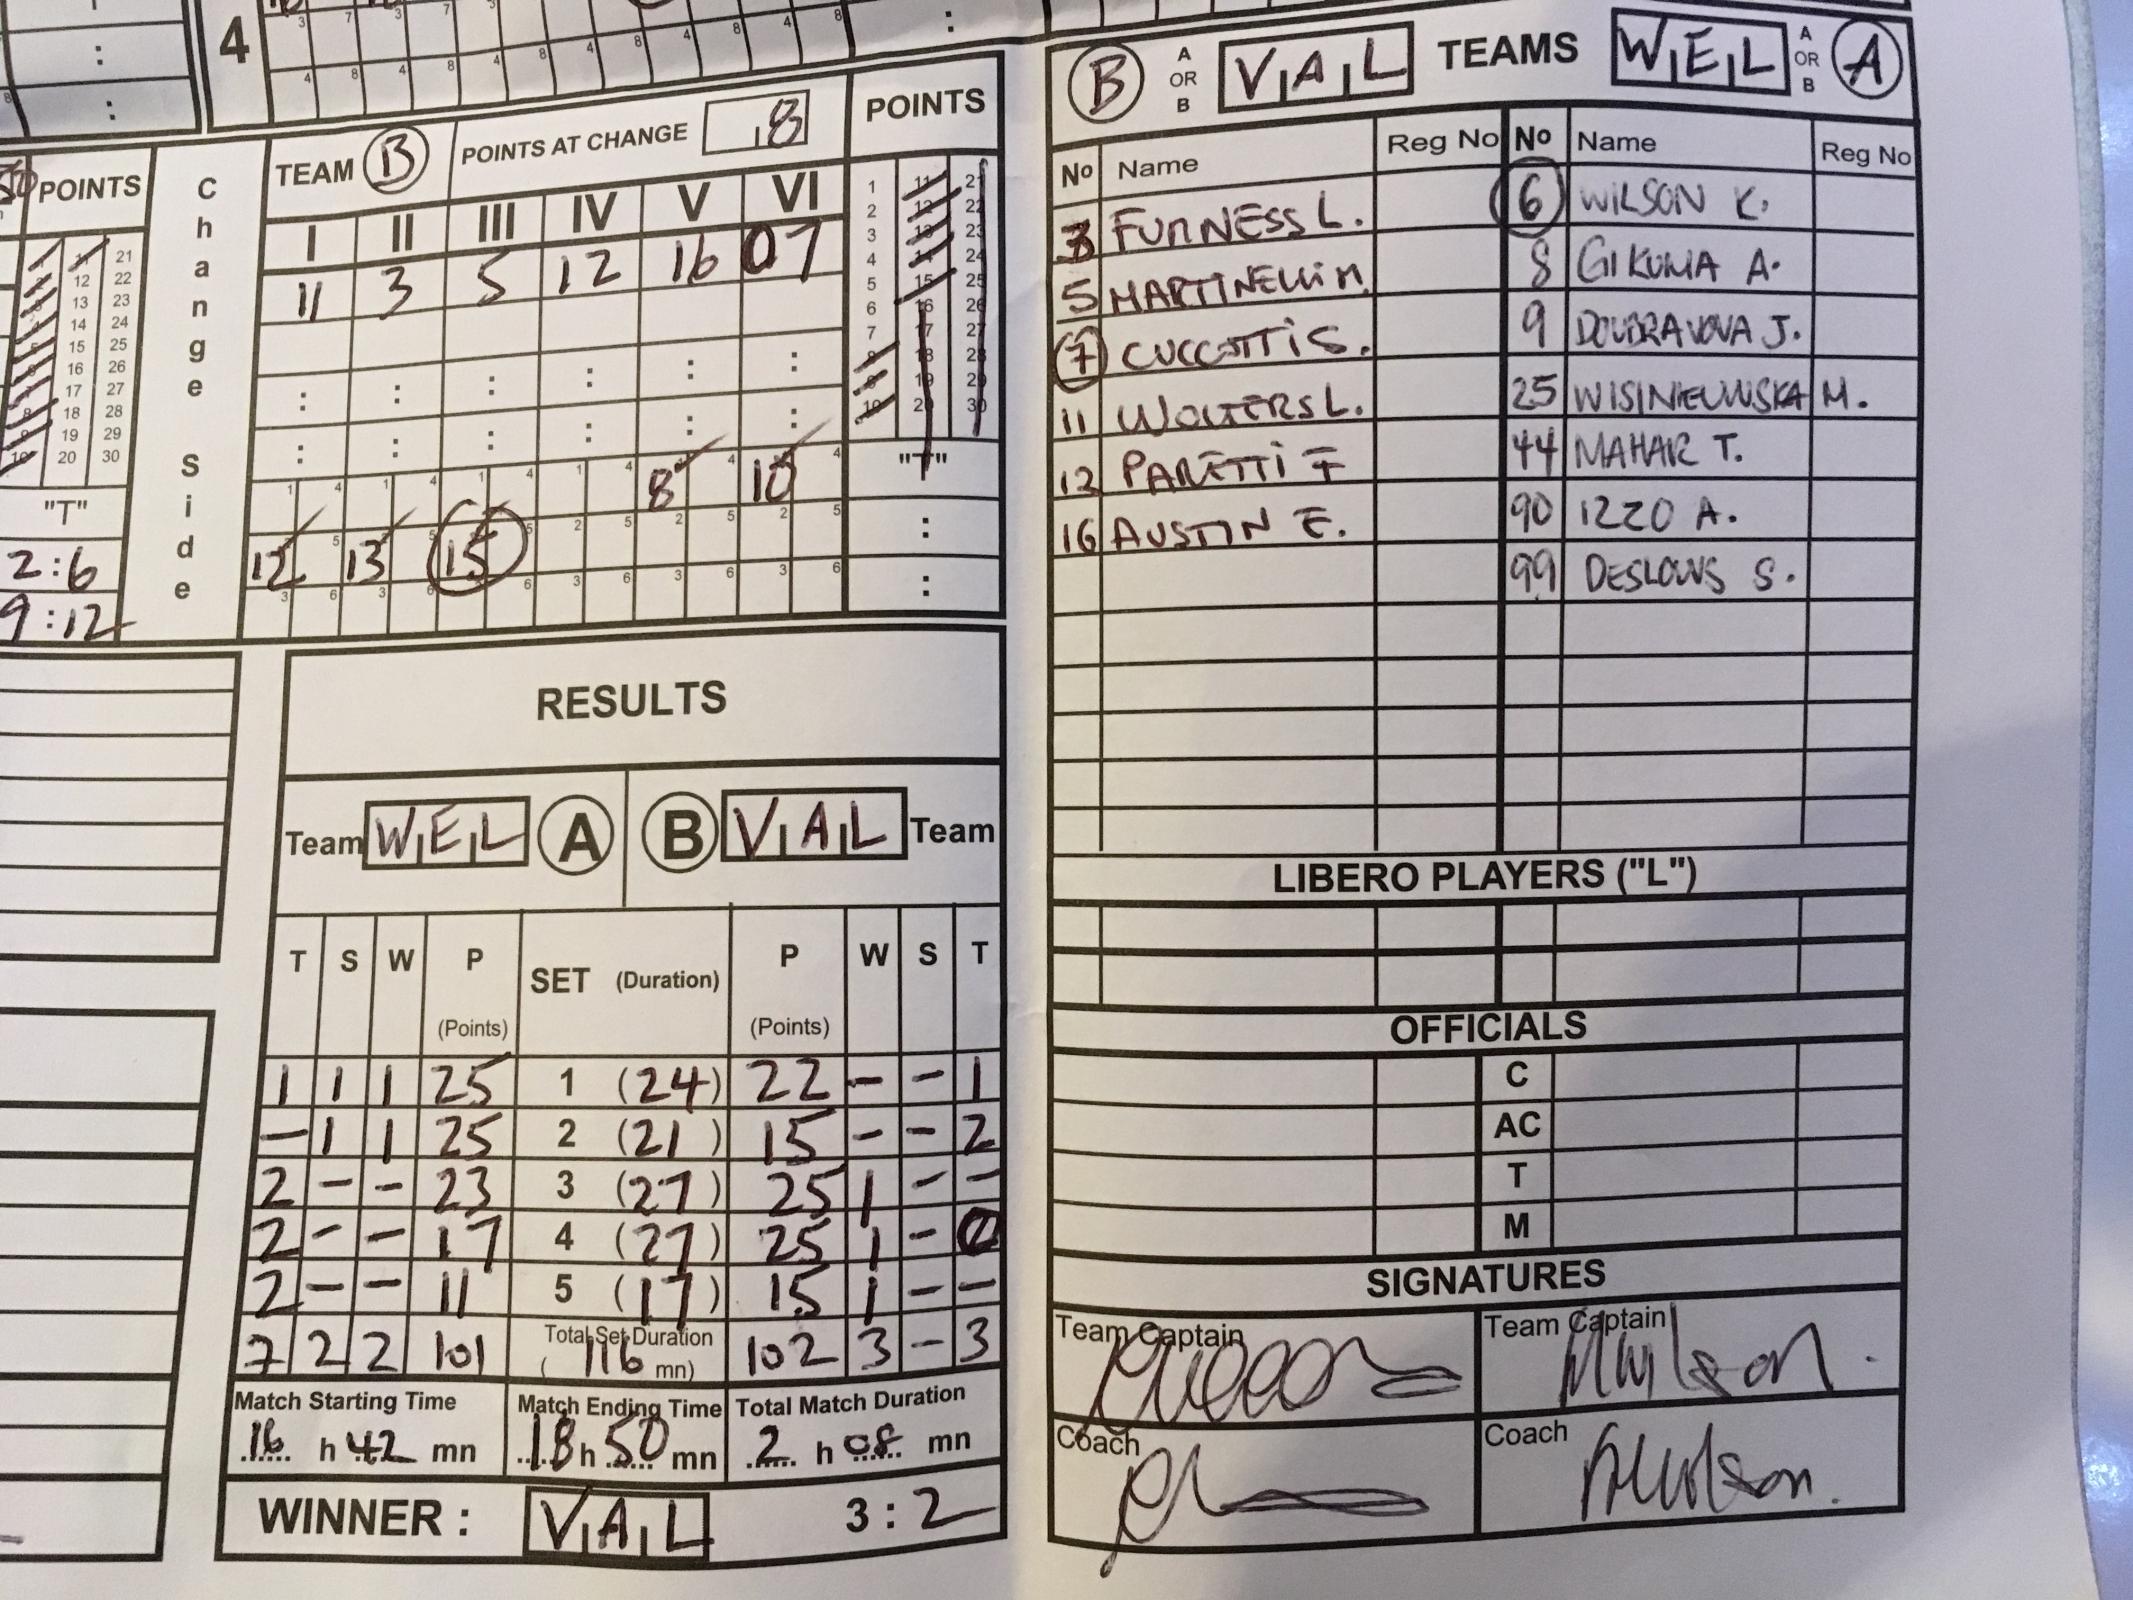 4
TEAM B POINTS AT CHANGE 8 POINTS
I II III IV V VI
11 3 5 12 16 07
8 10
12 13 15
"T"
POINTS
"T"
2:6
9:12
Change Side
B A OR B VAL TEAMS WEL A OR B A
No Name Reg No No Name Reg No
3 FURNESS L. 6 WILSON K.
5 MARTINELLI M. 8 GIKUMA A.
7 CUCCOTTI S. 9 DOUBRAVOVA J.
11 WOLTERS L. 25 WISINIEUWSKA M.
12 PARETTI F 44 MAHAR T.
16 AUSTIN E. 90 IZZO A.
99 DESLOUS S.
LIBERO PLAYERS ("L")
OFFICIALS
C
AC
T
M
SIGNATURES
Team Captain Team Captain
Coach Coach
RESULTS
Team WEL A B VAL Team
T S W P (Points) SET (Duration) P (Points) W S T
1 1 1 25 1 (24) 22 - - 1
- 1 1 25 2 (21) 15 - - 2
2 - - 23 3 (27) 25 1 - -
2 - - 17 4 (27) 25 1 - 0
2 - - 11 5 (17) 15 1 - -
7 2 2 101 Total Set Duration (116 mn) 102 3 - 3
Match Starting Time Match Ending Time Total Match Duration
16 h 42 mn 18 h 50 mn 2 h 08 mn
WINNER : VAL 3 : 2